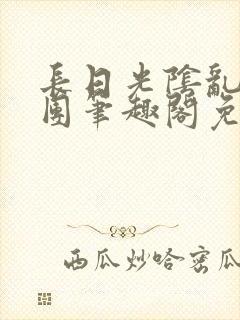 長日光陰亂
團筆趣閣免
西瓜炒哈密瓜